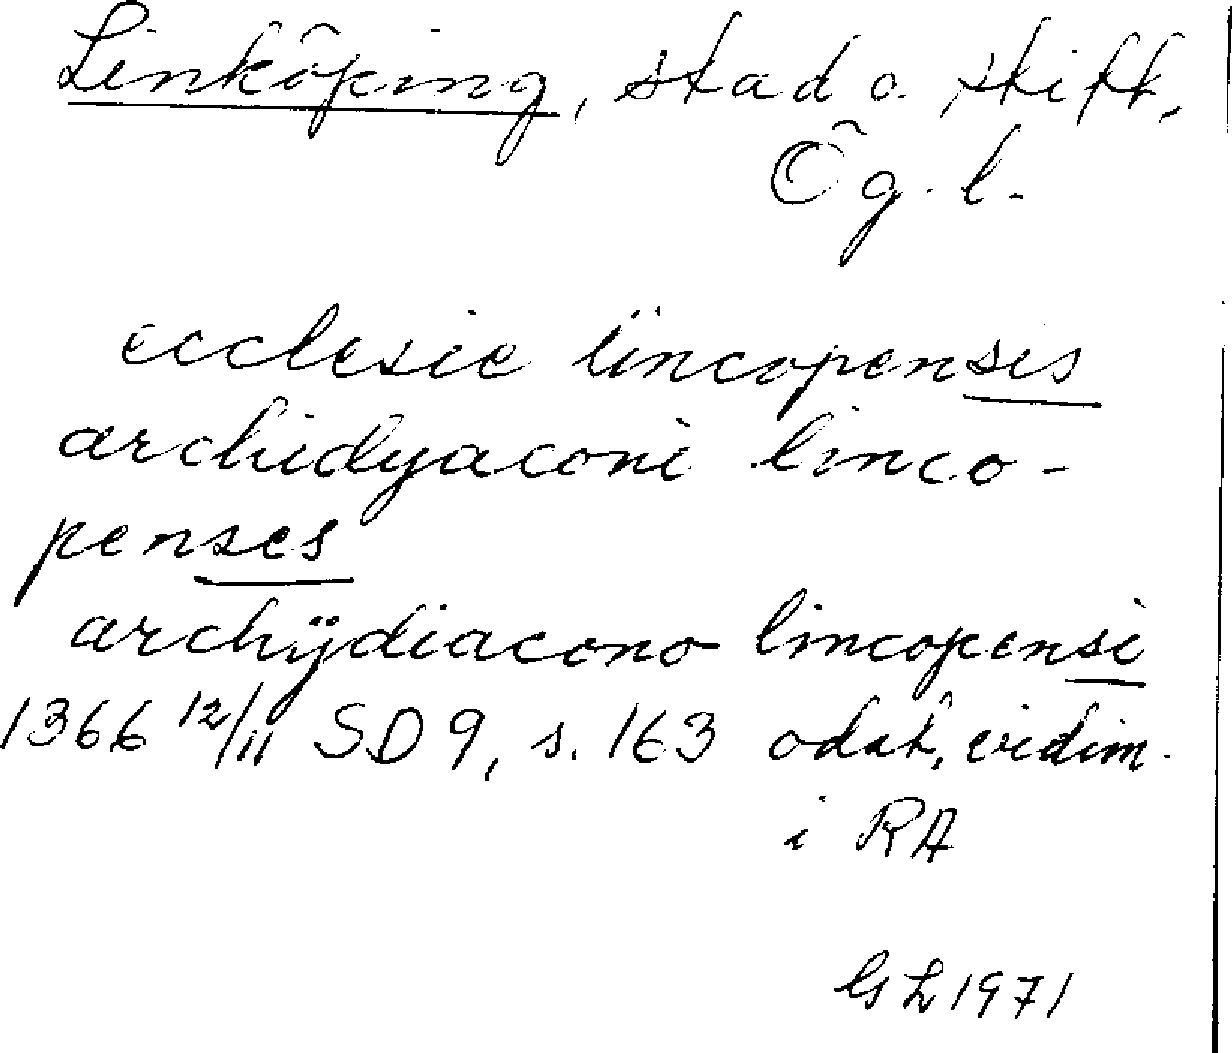 Linköping, stad o. stift,
Ög. l.
ecclesie lincopensis
archidyaconi linco-
penses
archÿdiacono lincopensi
1366 12/11 SD 9, s. 163 odat, vidim.
i RA
GL 1971